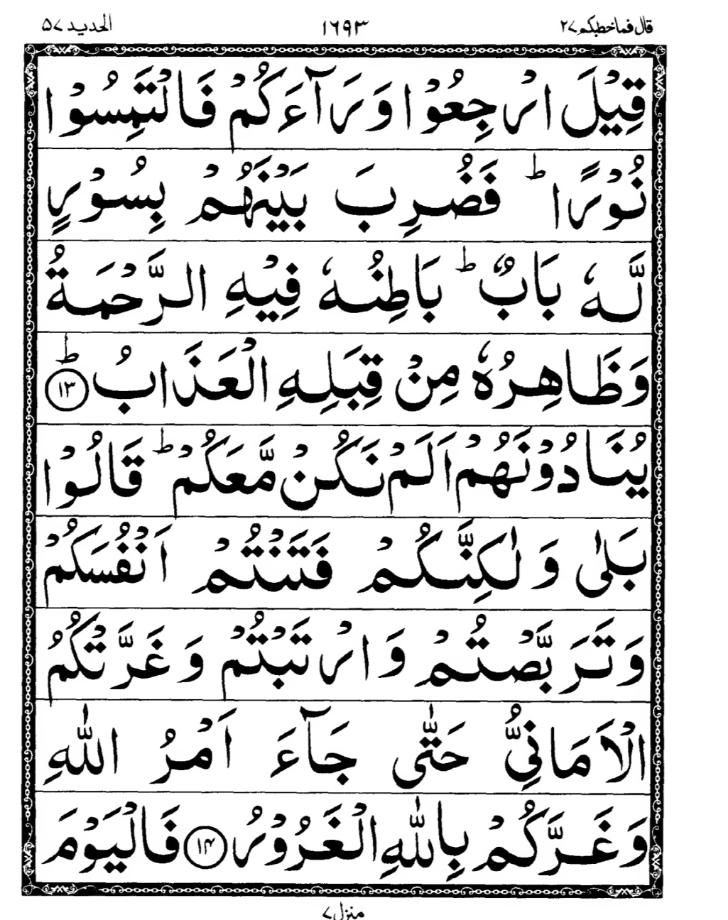 قال فما خطبكم ۲۷ ۱۶۹۳ الحديد ۵۷
قِيْلَ ارْجِعُوْا وَرَآءَكُمْ فَالْتَمِسُوْا
نُوْرًا ؕ فَضُرِبَ بَيْنَهُمْ بِسُوْرٍ
لَّهٗ بَابٌ ؕ بَاطِنُهٗ فِيْهِ الرَّحْمَةُ
وَظَاهِرُهٗ مِنْ قِبَلِهِ الْعَذَابُ ؕ ۱۳
يُنَادُوْنَهُمْ اَلَمْ نَكُنْ مَّعَكُمْ ؕ قَالُوْا
بَلٰى وَ لٰكِنَّكُمْ فَتَنْتُمْ اَنْفُسَكُمْ
وَتَرَبَّصْتُمْ وَارْتَبْتُمْ وَغَرَّتْكُمُ
الْاَمَانِيُّ حَتّٰى جَآءَ اَمْرُ اللّٰهِ
وَغَرَّكُمْ بِاللّٰهِ الْغَرُوْرُ ۱۴ فَالْيَوْمَ
منزل ۷